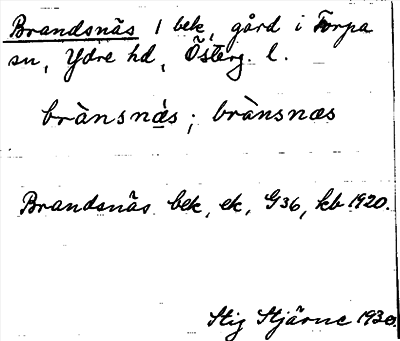 Brandsnäs 1 bek, gård i Torpa
sn, Ydre hd, Österg. l.
brànsnä̀s ; brànsnæs
Brandsnäs bek, ek, G36, kb 1920.
Stig Stjärne 1930.